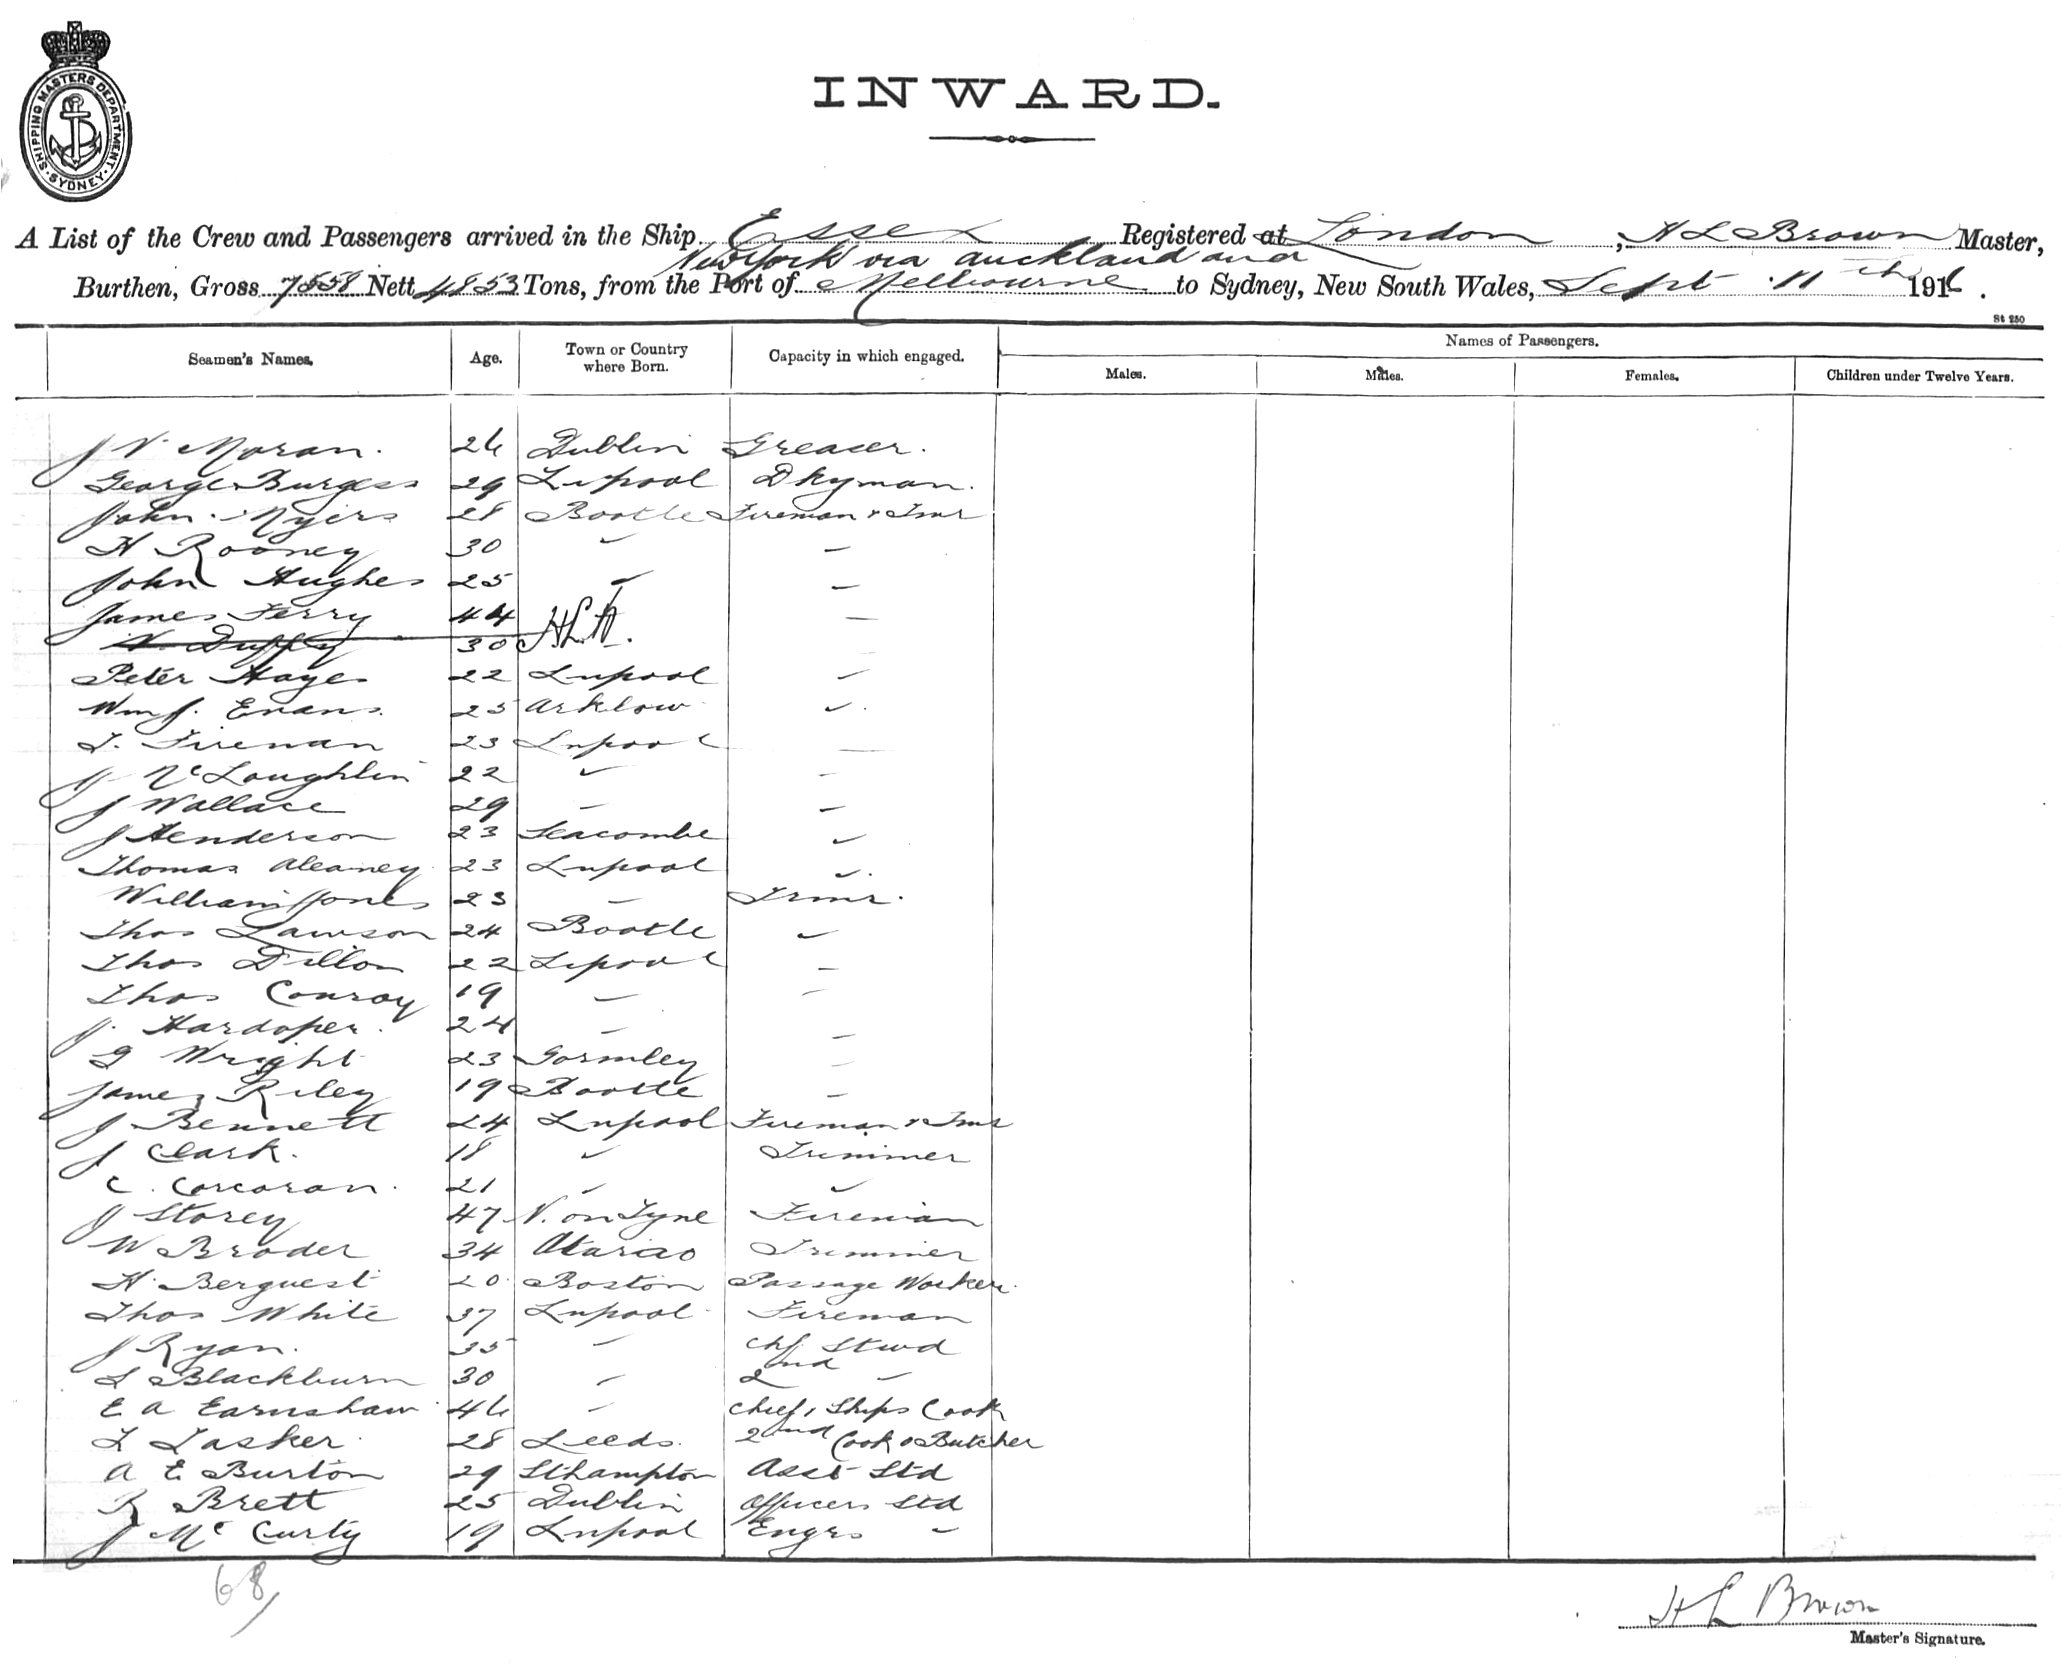 SHIPPING MASTERS DEPARTMENT · SYDNEY ·
INWARD.
A List of the Crew and Passengers arrived in the Ship Essex Registered at London, H L Brown Master,
New York via Auckland and
Burthen, Gross 7558 Nett 4853 Tons, from the Port of Melbourne to Sydney, New South Wales, Sept 11th 1916.
St 250
Seamen's Names. Age. Town or Country where Born. Capacity in which engaged. Names of Passengers.
Males. Males. Females. Children under Twelve Years.
J Moran. 26 Dublin Greaser.
George Burgess 29 Lipool Dkyman.
John Myers 28 Bootle Fireman & Tmr
H Rooney 30 " "
John Hughes 25 " "
James Ferry 44 "
Duffy 30
Peter Hayes 22 Lnpool "
Wm J. Evans 25 Arklow "
T. Fireman 23 Lnpool "
J McLoughlin 22 " "
J Wallace 29 " "
J Henderson 23 Seacombe "
Thomas 23 Lnpool "
William Jones 23 " Trmr.
Thos Lawson 24 Bootle "
Thos Dillon 22 Lipool "
Thos Conroy 19 " "
J. 24 " "
G Wright 23 Gormley "
James Riley 19 Bootle "
J Bennett 24 Lnpool Fireman & Tmr
J Clark. 18 " Trimmer
C. Corcoran. 21 " "
J Storey 47 N. on Tyne Fireman
W Broder 34 Trimmer
H. Berquest 20 Boston Passage Worker.
Thos White 37 Lnpool Fireman
J Ryan. 35 " Chf Stwd
L Blackburn 30 " 2nd "
E A Earnshaw 46 " Chief, Ships Cook
T Tasker 28 Leeds. 2nd Cook & Butcher
A E Burton 29 Sthampton Asst Std
R Brett 25 Dublin Officers Std
J McCurty 19 Lnpool Engrs "
68
H L Brown
Master's Signature.